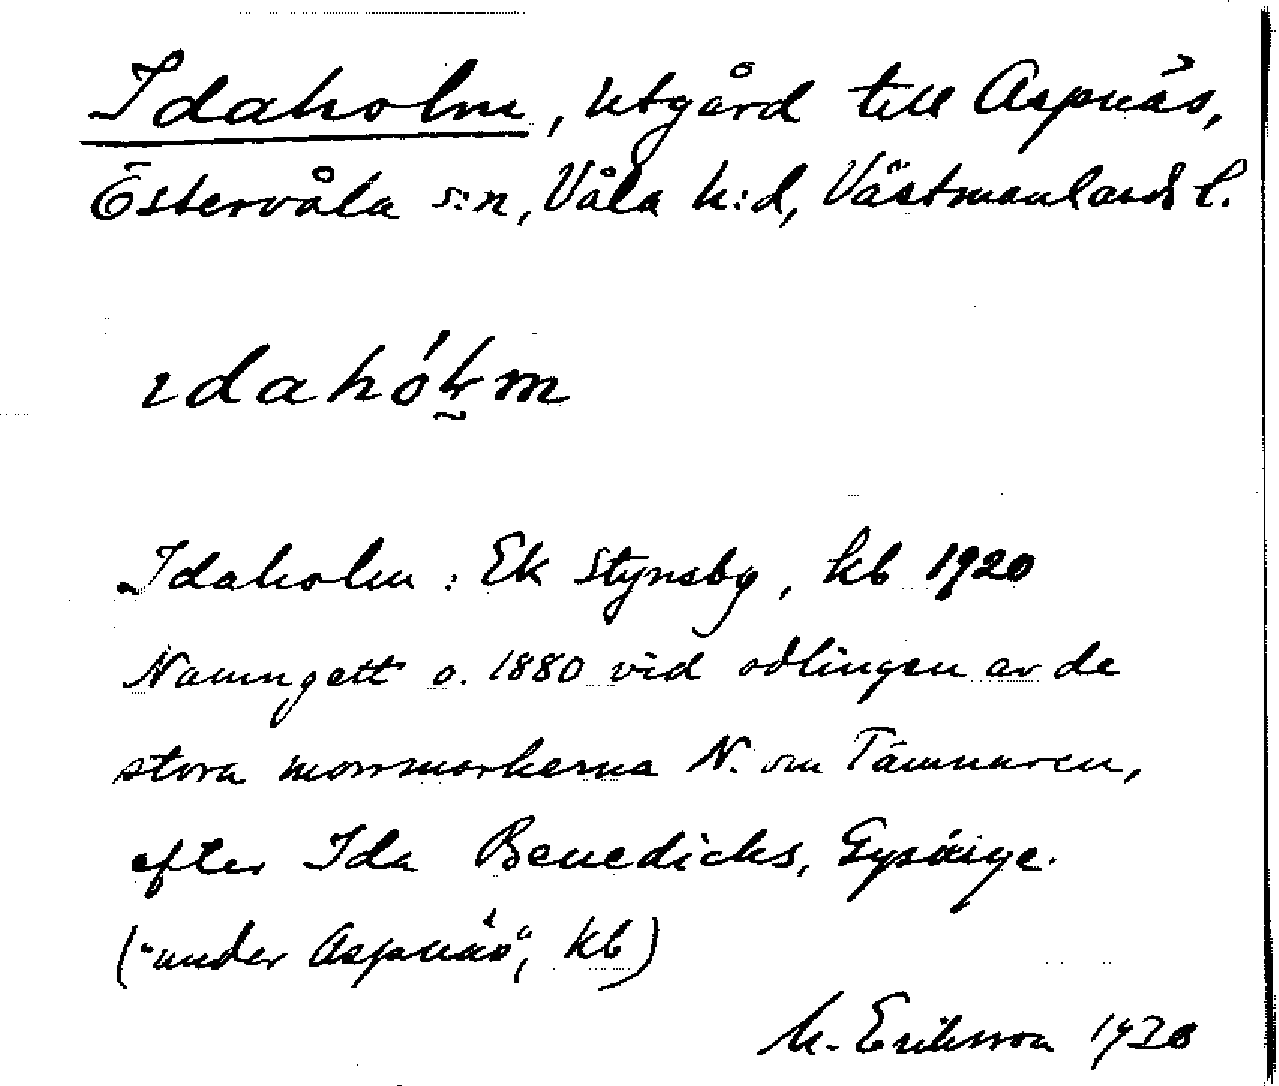 Idaholm, utgård till Aspnäs,
Östervåla s:n, Våla h:d, Västmanlands l.
ıdahóɫm
Idaholm: Ek Stynsby, kb 1920
Namngett o. 1880 vid odlingen av de
stora mommarkerna N. om Tämnaren,
efter Ida Benedicks, Gysinge.
("under Aspnäs", kb)
M. Eriksson